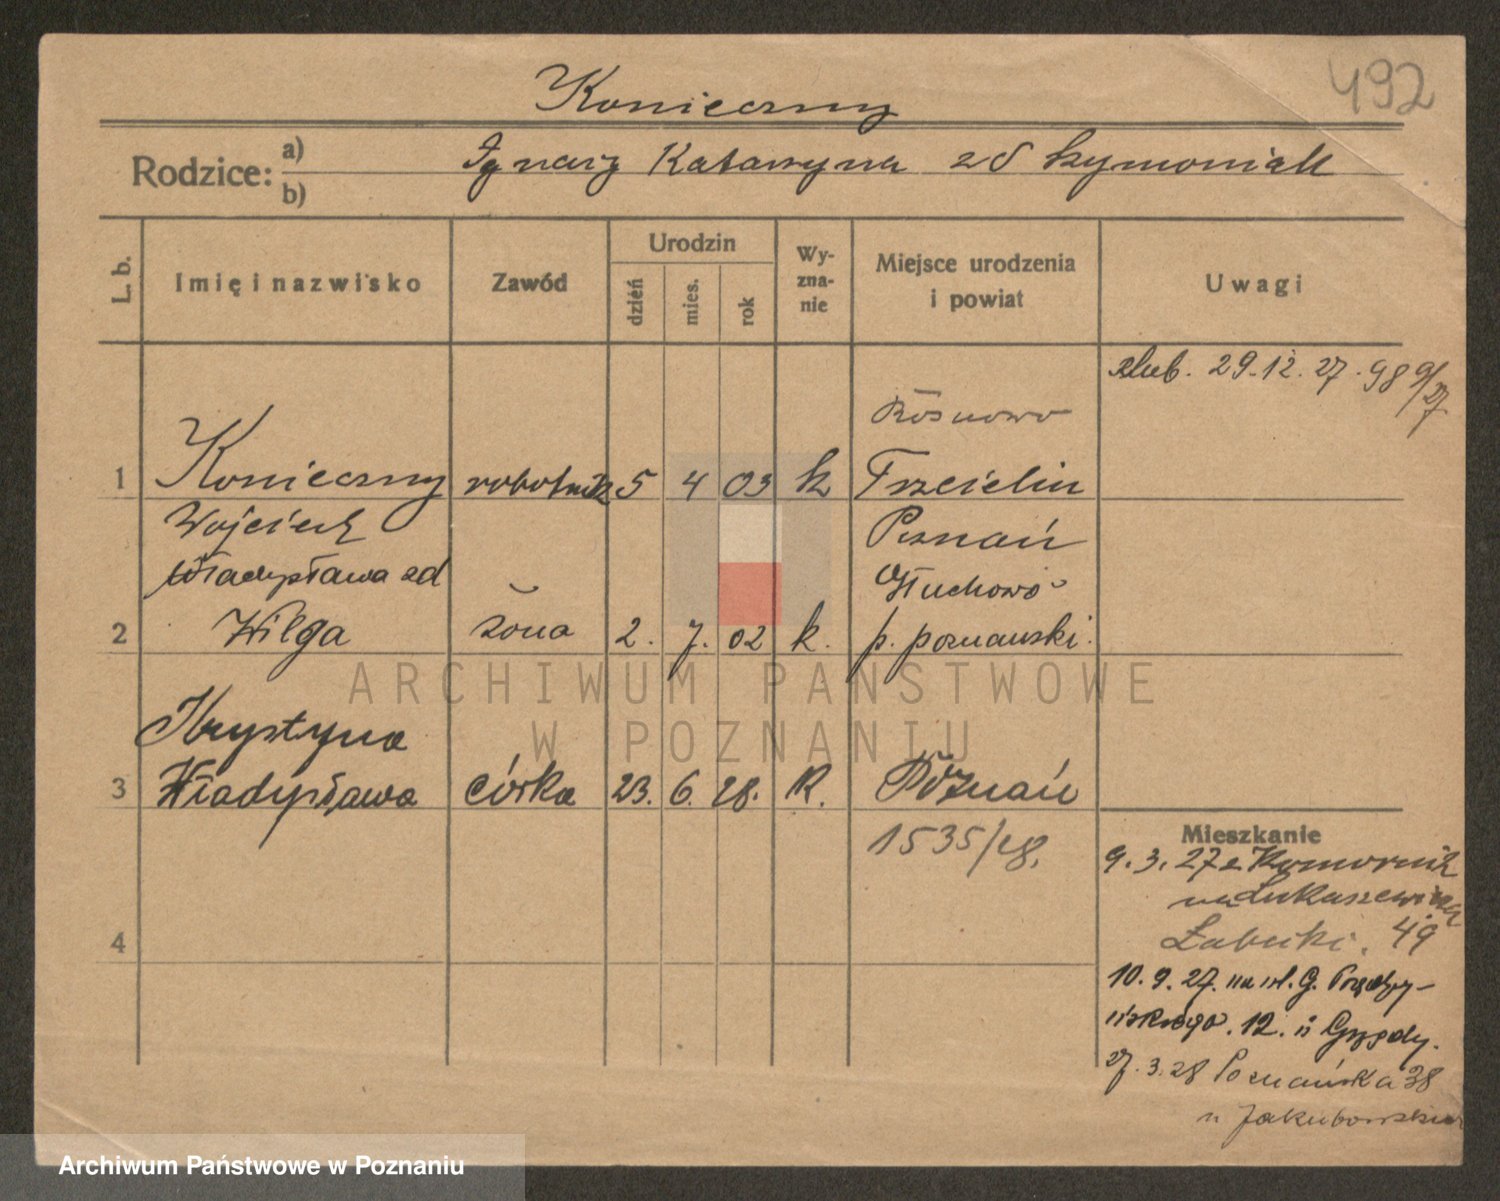 492
Konieczny
Rodzice: a) b) Ignacy Katarzyna zd Szymoniak
L. b.
Imię i nazwisko
Zawód
Urodzin
dzień
mies.
rok
Wy-
zna-
nie
Miejsce urodzenia
i powiat
Uwagi
ślub. 29.12.27. 98 9/27
Rosnowo
1 Konieczny robotnik 5 4 03 k Trzcielin
Wojciech Poznań
Władysława zd Głuchowo
2 Wilga żona 2. 7. 02 k. p. poznański.
Krystyna
3 Władysława córka 23. 6. 28. k. Poznań
1535/28.
4
Mieszkanie
9.3.27 z Komornik
na Łukaszewicza
49
10.9.27. na ul. G. Prądzy-
ńskiego. 12.
27.3.28 Poznańska 38
ARCHIWUM PAŃSTWOWE
W POZNANIU
Archiwum Państwowe w Poznaniu